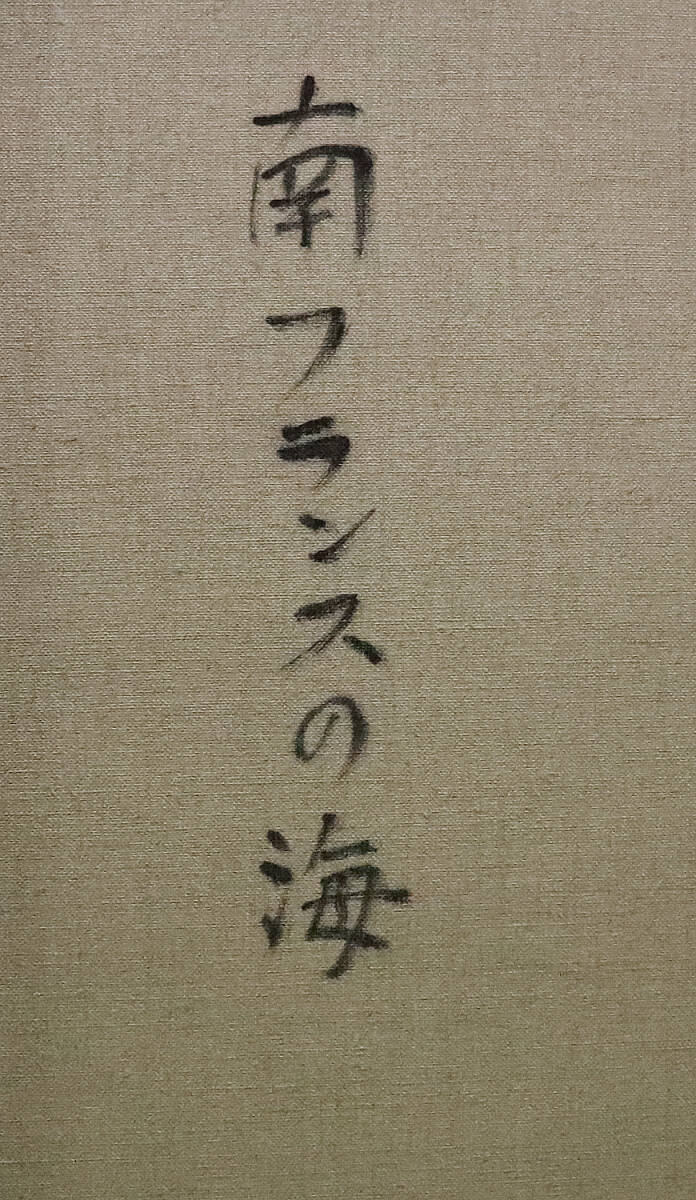 南フランスの海